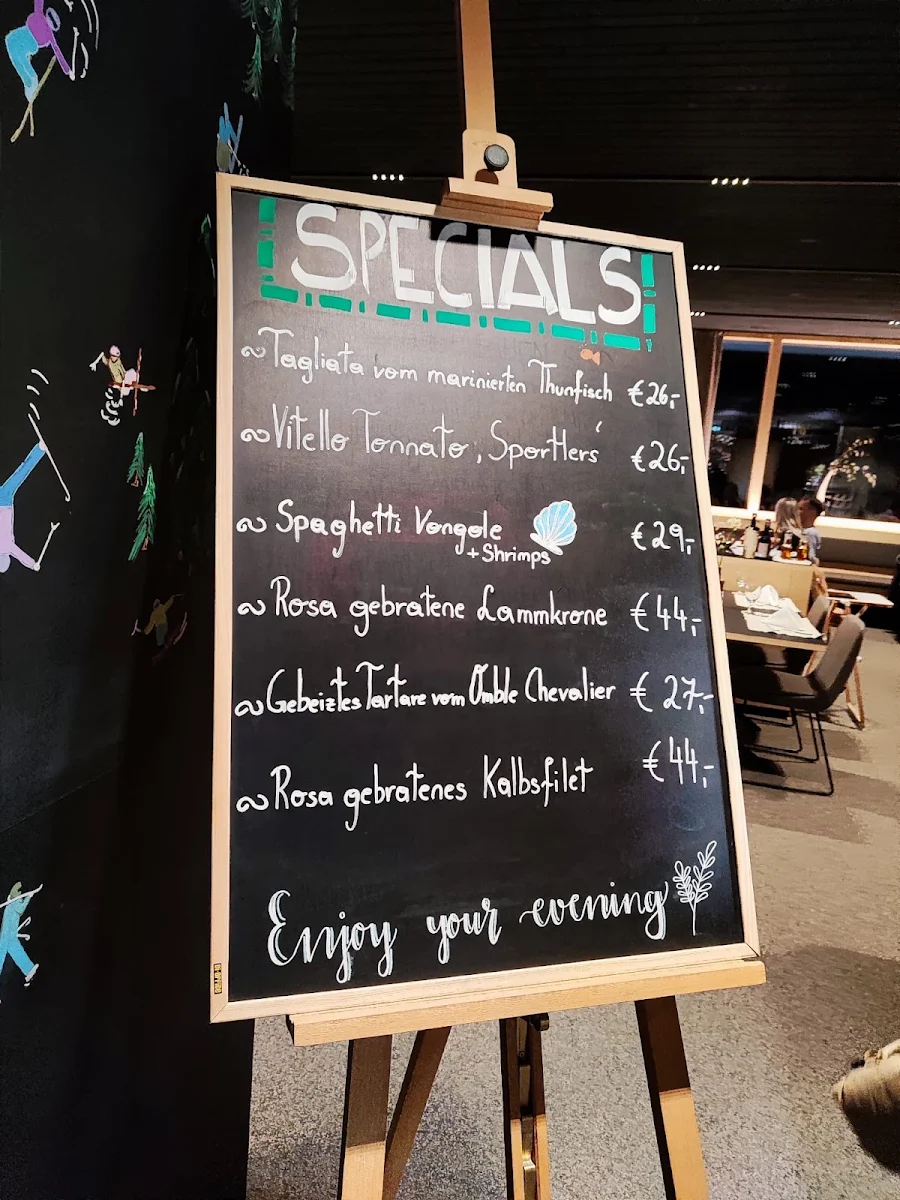 SPECIALS
Tagliata vom marinierten Thunfisch €26,-
Vitello Tonnato, Sportlers' €26,-
Spaghetti Vongole €29,-
+ Shrimps
Rosa gebratene Lammkrone €44,-
Gebeiztes Tartare vom Omble Chevalier € 27,-
Rosa gebratenes Kalbsfilet €44,-
Enjoy your evening